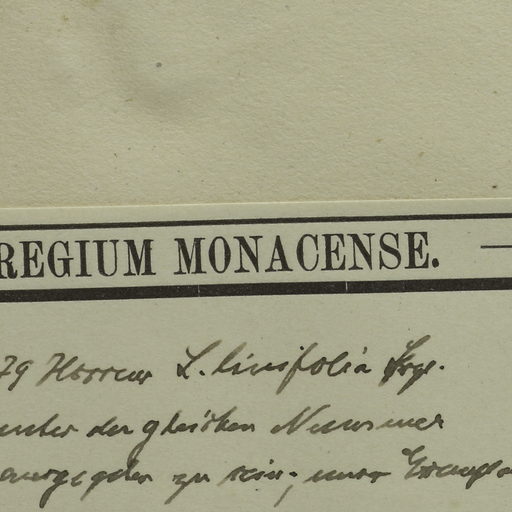 REGIUM MONACENSE.
79 L. linifolia
unter der gleichen Nummer
ausgegeben zu sein;